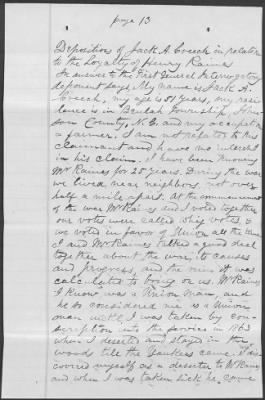 page 13
Deposition of Jack A. Creech in relation
to the Loyalty of Henry Raines
In answer to the First General Interrogatory
deponent says, My name is Jack A.
Creech, my age is 51 years, my resi
dence is in Beulah Township, John
son County, N.C. and my occupation
a farmer. I am not related to the
claimant and have no interest
in his claim. I have been knowing
Mr Raines for 25 years. During the war
we lived near neighbors, not over
half a mile apart. At the commencement
of the war Mr Raines and I voted together
our votes were called Whig votes &
we voted in favor of Union all the time
I and Mr Raines talked a good deal
together about the war, its causes
and progress, and the ruin it was
calculated to bring on us. Mr Raines
I know was a Union man, and
he so considered me as a Union
man until I was taken by con-
scription into the service in 1863
when I deserted and stayed in the
woods till the Yankees came. I dis
covered myself as a deserter to Mr Raines
and when I was taken sick he came